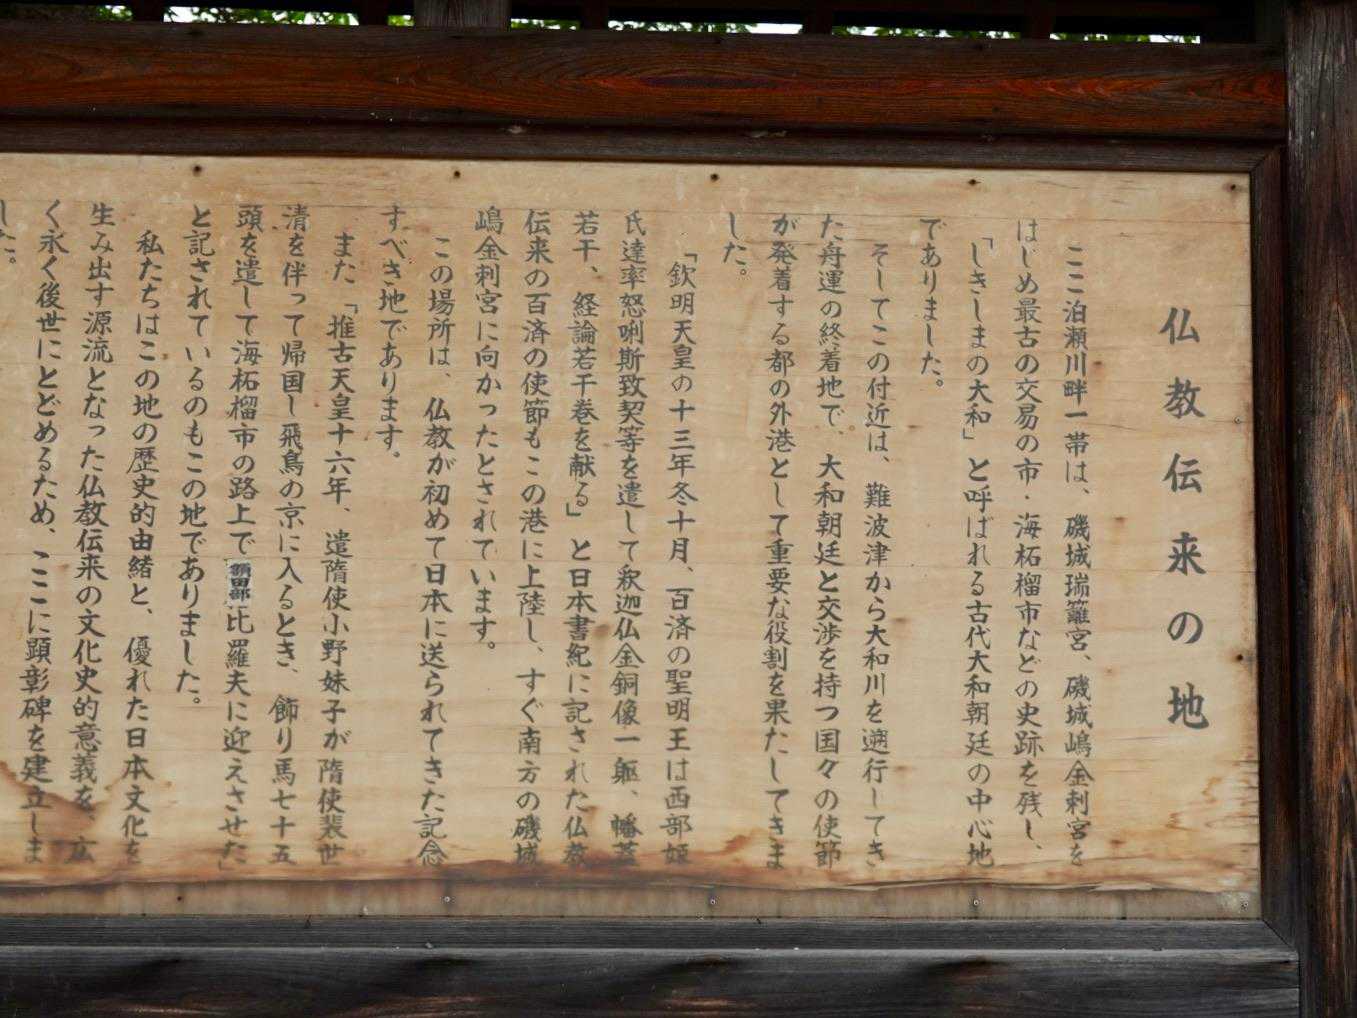 仏教伝来の地
ここ泊瀬川畔一帯は、磯城瑞籬宮、磯城嶋金刺宮を
はじめ最古の交易の市・海柘榴市などの史跡を残し、
「しきしまの大和」と呼ばれる古代大和朝廷の中心地
でありました。
そしてこの付近は、難波津から大和川を遡行してき
た舟運の終着地で、大和朝廷と交渉を持つ国々の使節
が発着する都の外港として重要な役割を果たしてきま
した。
「欽明天皇の十三年冬十月、百済の聖明王は西部姫
氏達率怒唎斯致契等を遣して釈迦仏金銅像一躯、幡蓋
若干、経論若干巻を献る」と日本書紀に記された仏教
伝来の百済の使節もこの港に上陸し、すぐ南方の磯城
嶋金刺宮に向かったとされています。
この場所は、仏教が初めて日本に送られてきた記念
すべき地であります。
また「推古天皇十六年、遣隋使小野妹子が隋使裴世
清を伴って帰国し飛鳥の京に入るとき、飾り馬七十五
頭を遣して海柘榴市の路上で額田部比羅夫に迎えさせた」
と記されているのもこの地でありました。
私たちはこの地の歴史的由緒と、優れた日本文化を
生み出す源流となった仏教伝来の文化史的意義を、広
く永く後世にとどめるため、ここに顕彰碑を建立しま
した。